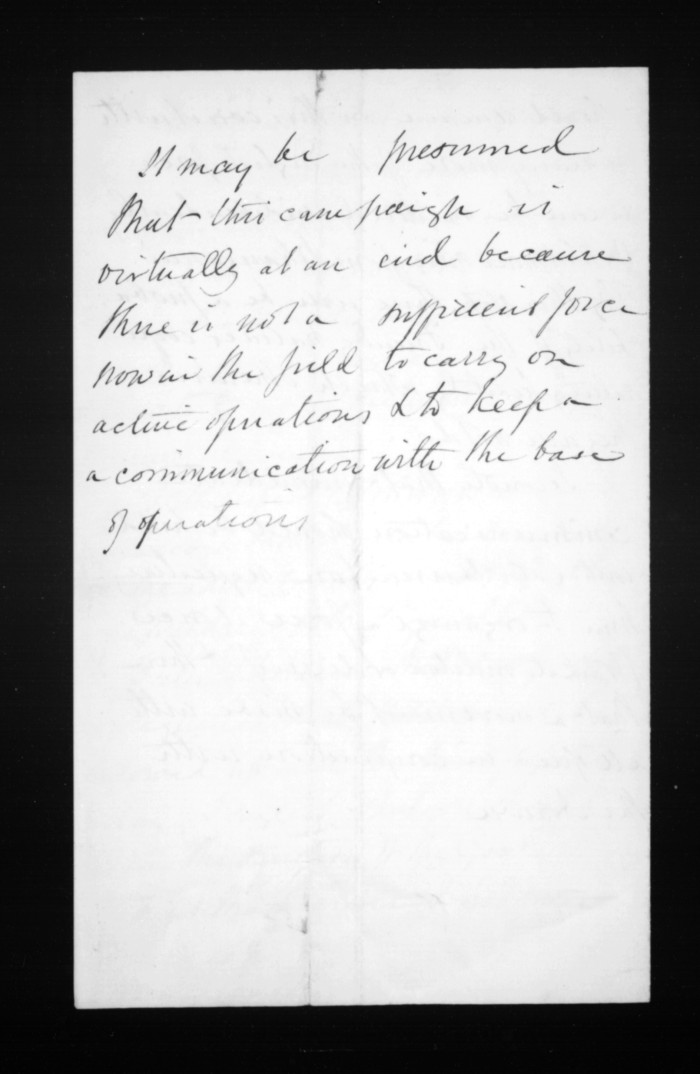 It may be presumed
that this campaign is
virtually at an end because
there is not a sufficient force
now in the field to carry on
active operations & to keep a
a communication with the base
of operations